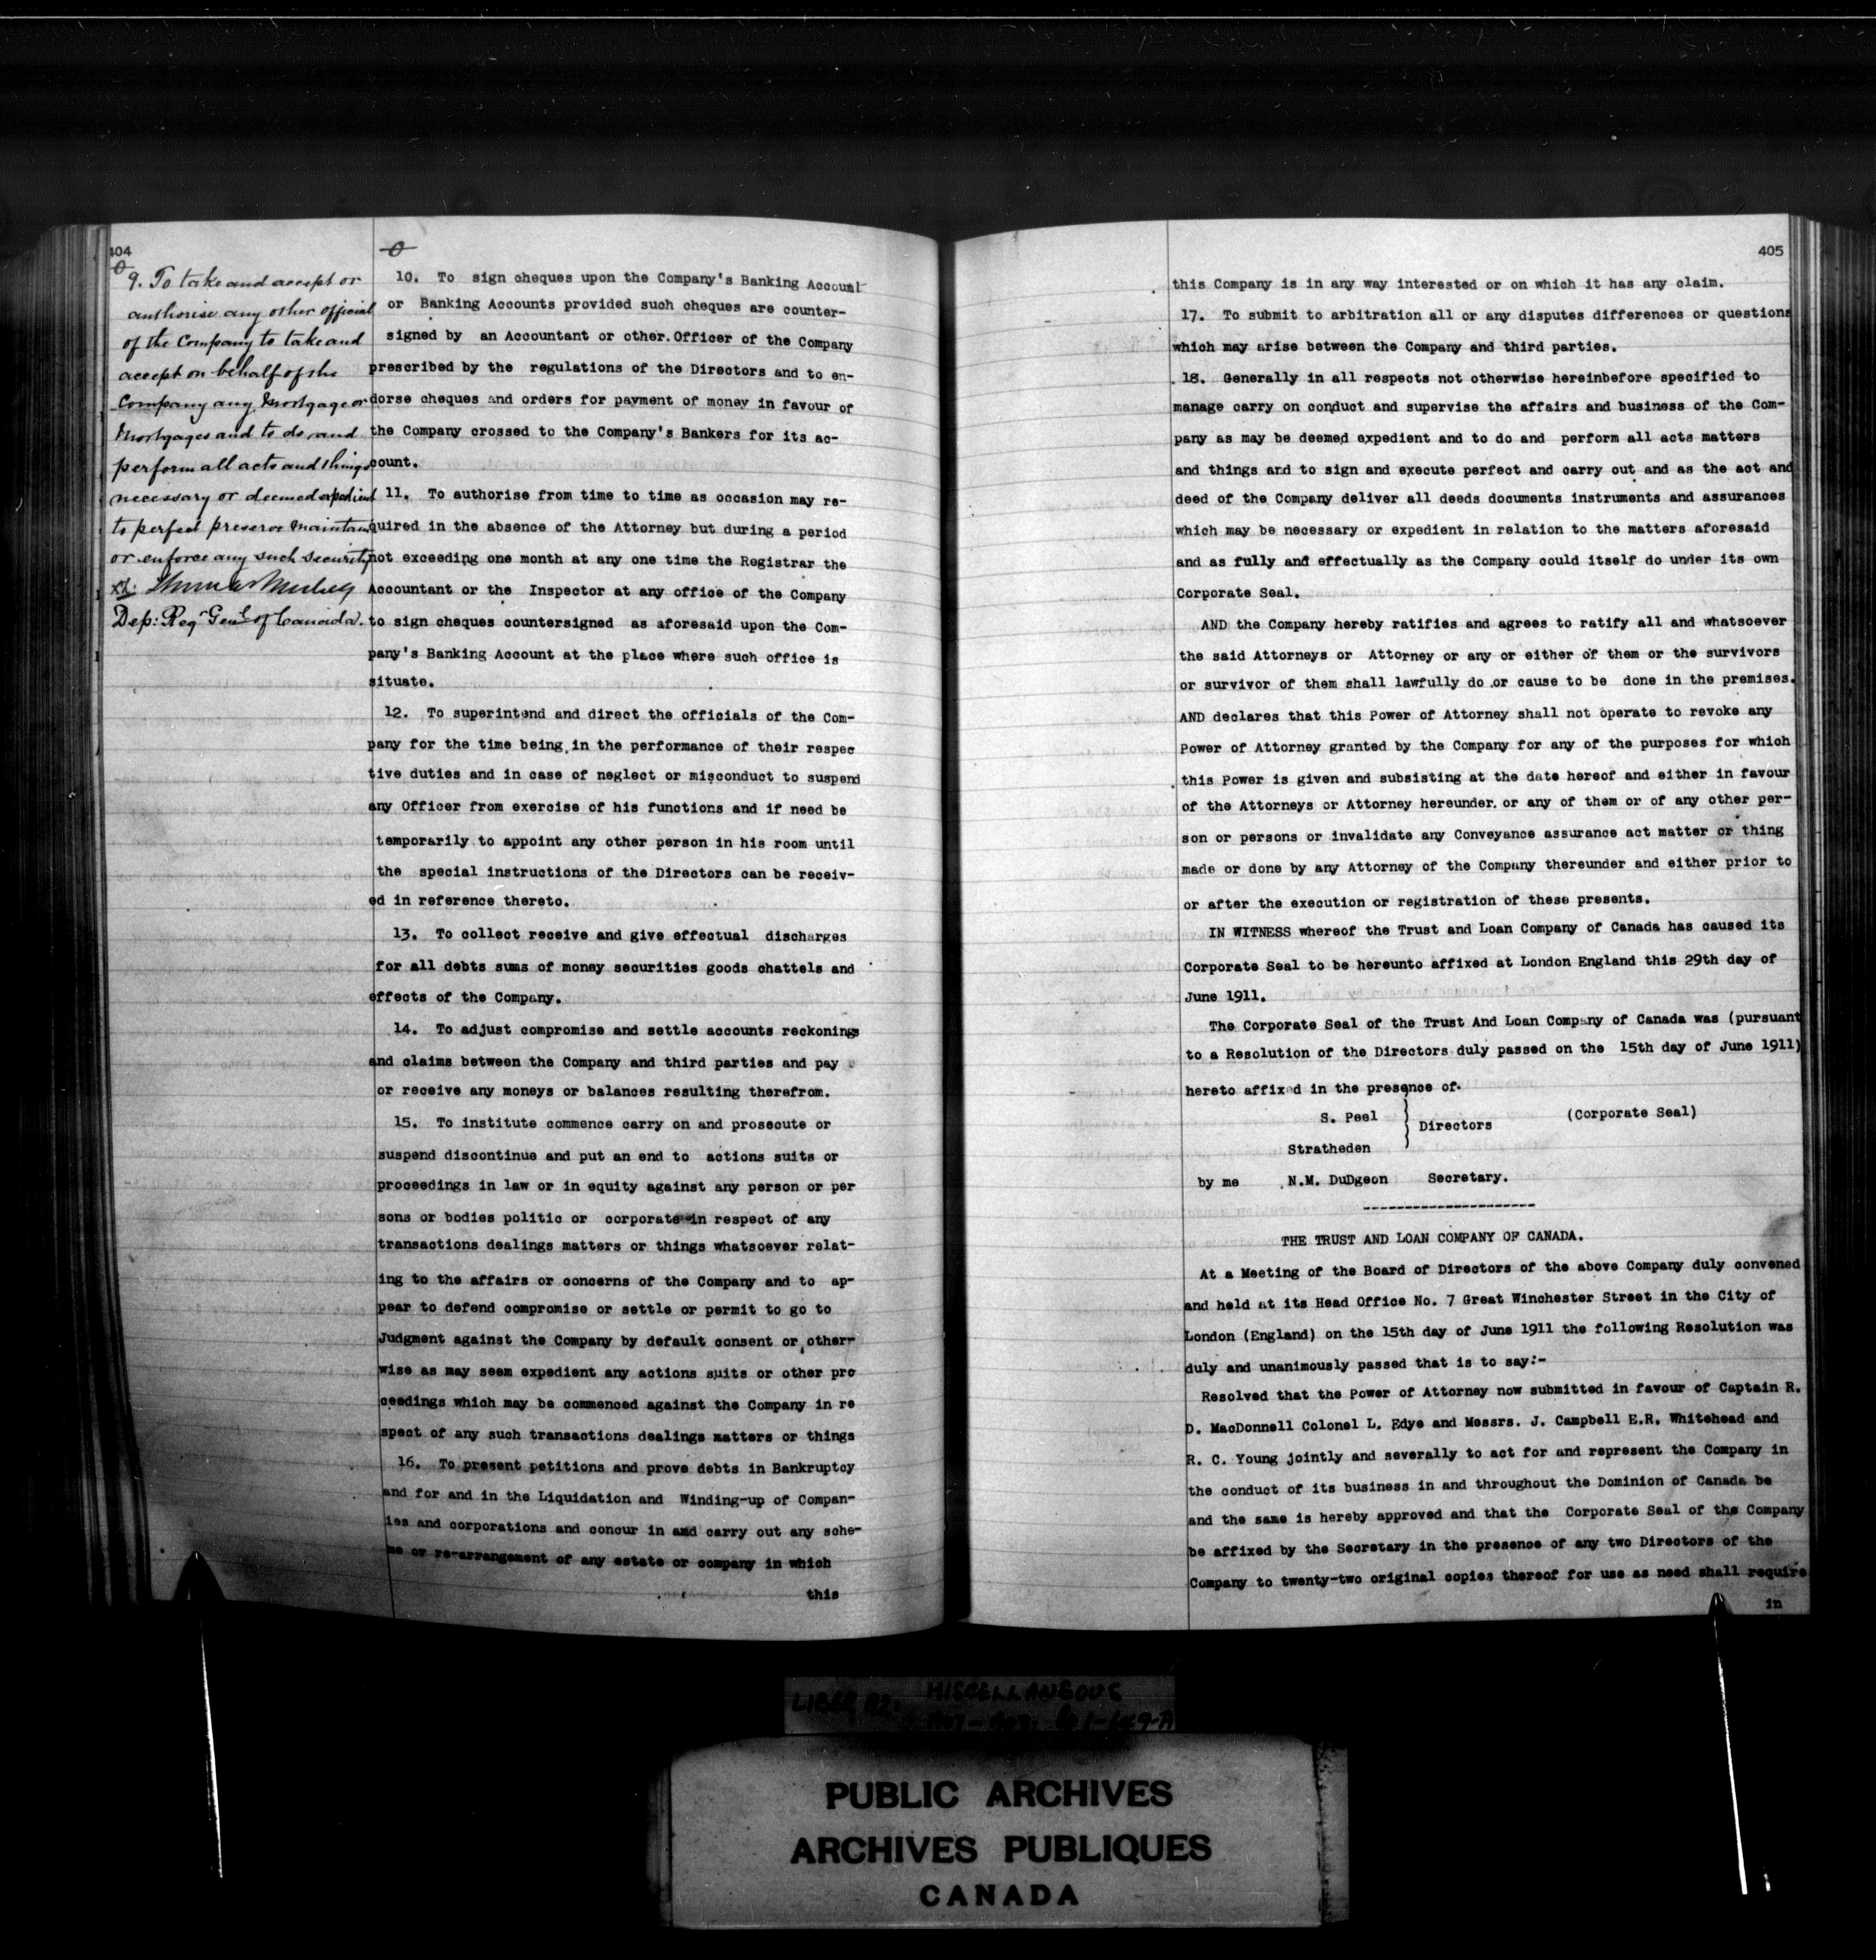 404
9. To take and accept or
authorise any other official
of the Company to take and
accept on behalf of the
Company any Mortgage or
Mortgages and to do and
perform all acts and things
necessary or deemed expedient
to perfect preserve maintain
or enforce any such security
Dep: Regr Genl of Canada.
10. To sign cheques upon the Company's Banking Account
or Banking Accounts provided such cheques are counter-
signed by an Accountant or other Officer of the Company
prescribed by the regulations of the Directors and to en-
dorse cheques and orders for payment of money in favour of
the Company crossed to the Company's Bankers for its ac-
count.
11. To authorise from time to time as occasion may re-
quired in the absence of the Attorney but during a period
not exceeding one month at any one time the Registrar the
Accountant or the Inspector at any office of the Company
to sign cheques countersigned as aforesaid upon the Com-
pany's Banking Account at the place where such office is
situate.
12. To superintend and direct the officials of the Com-
pany for the time being in the performance of their respec
tive duties and in case of neglect or misconduct to suspend
any Officer from exercise of his functions and if need be
temporarily to appoint any other person in his room until
the special instructions of the Directors can be receiv-
ed in reference thereto.
13. To collect receive and give effectual discharges
for all debts sums of money securities goods chattels and
effects of the Company.
14. To adjust compromise and settle accounts reckonings
and claims between the Company and third parties and pay
or receive any moneys or balances resulting therefrom.
15. To institute commence carry on and prosecute or
suspend discontinue and put an end to actions suits or
proceedings in law or in equity against any person or per
sons or bodies politic or corporate in respect of any
transactions dealings matters or things whatsoever relat-
ing to the affairs or concerns of the Company and to ap-
pear to defend compromise or settle or permit to go to
Judgment against the Company by default consent or other-
wise as may seem expedient any actions suits or other pro
ceedings which may be commenced against the Company in re
spect of any such transactions dealings matters or things
16. To present petitions and prove debts in Bankruptcy
and for and in the Liquidation and Winding-up of Compan-
ies and corporations and concur in and carry out any sche-
me or re-arrangement of any estate or company in which
this
405
this Company is in any way interested or on which it has any claim.
17. To submit to arbitration all or any disputes differences or questions
which may arise between the Company and third parties.
18. Generally in all respects not otherwise hereinbefore specified to
manage carry on conduct and supervise the affairs and business of the Com-
pany as may be deemed expedient and to do and perform all acts matters
and things and to sign and execute perfect and carry out and as the act and
deed of the Company deliver all deeds documents instruments and assurances
which may be necessary or expedient in relation to the matters aforesaid
and as fully and effectually as the Company could itself do under its own
Corporate Seal.
AND the Company hereby ratifies and agrees to ratify all and whatsoever
the said Attorneys or Attorney or any or either of them or the survivors
or survivor of them shall lawfully do or cause to be done in the premises.
AND declares that this Power of Attorney shall not operate to revoke any
Power of Attorney granted by the Company for any of the purposes for which
this Power is given and subsisting at the date hereof and either in favour
of the Attorneys or Attorney hereunder or any of them or of any other per-
son or persons or invalidate any Conveyance assurance act matter or thing
made or done by any Attorney of the Company thereunder and either prior to
or after the execution or registration of these presents.
IN WITNESS whereof the Trust and Loan Company of Canada has caused its
Corporate Seal to be hereunto affixed at London England this 29th day of
June 1911.
The Corporate Seal of the Trust And Loan Company of Canada was (pursuant
to a Resolution of the Directors duly passed on the 15th day of June 1911)
hereto affixed in the presence of.
S. Peel
Directors (Corporate Seal)
Stratheden
by me N.M. DuDgeon Secretary.
---------------------
THE TRUST AND LOAN COMPANY OF CANADA.
At a Meeting of the Board of Directors of the above Company duly convened
and held at its Head Office No. 7 Great Winchester Street in the City of
London (England) on the 15th day of June 1911 the following Resolution was
duly and unanimously passed that is to say:-
Resolved that the Power of Attorney now submitted in favour of Captain R.
D. MacDonnell Colonel L. Edye and Messrs. J. Campbell E.R. Whitehead and
R. C. Young jointly and severally to act for and represent the Company in
the conduct of its business in and throughout the Dominion of Canada be
and the same is hereby approved and that the Corporate Seal of the Company
be affixed by the Secretary in the presence of any two Directors of the
Company to twenty-two original copies thereof for use as need shall require
in
MISCELLANEOUS
PUBLIC ARCHIVES
ARCHIVES PUBLIQUES
CANADA